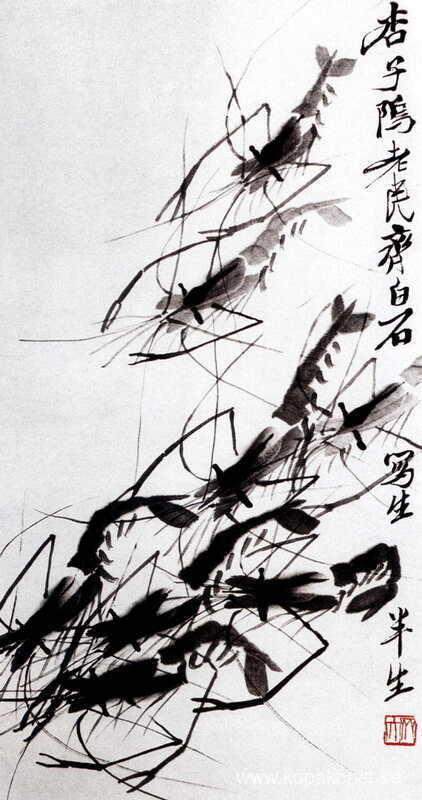 杏子隖老民齊白石
寫生
半生
www.kopakonst.se